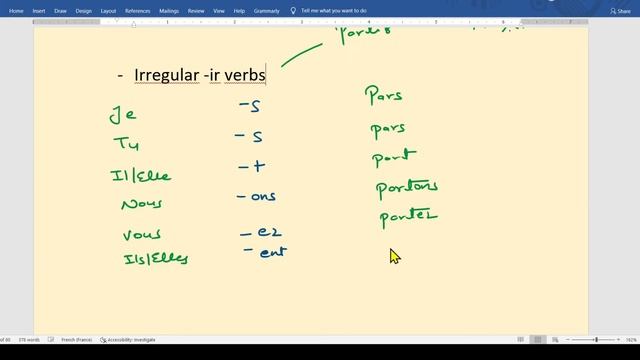 Layout References Mailings Review View Help Grammarly Tell me what you want to do Share
partir
- Irregular -ir verbs
Je -s Pars
Tu -s pars
Il/Elle -t part
Nous -ons partons
Vous -ez partez
Ils/Elles -ent
French (France) Accessibility: Investigate 162%